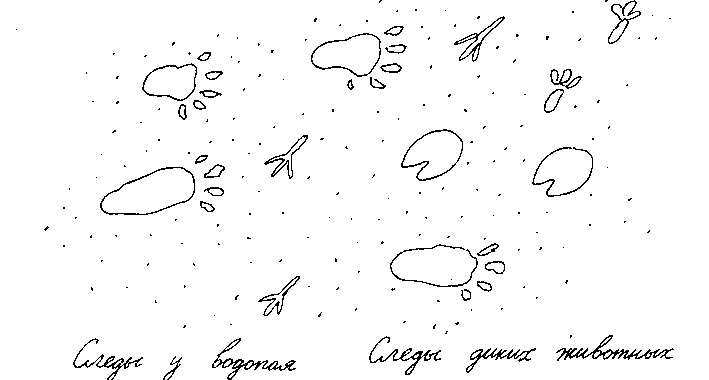 Следы у водопая
Следы диких животных